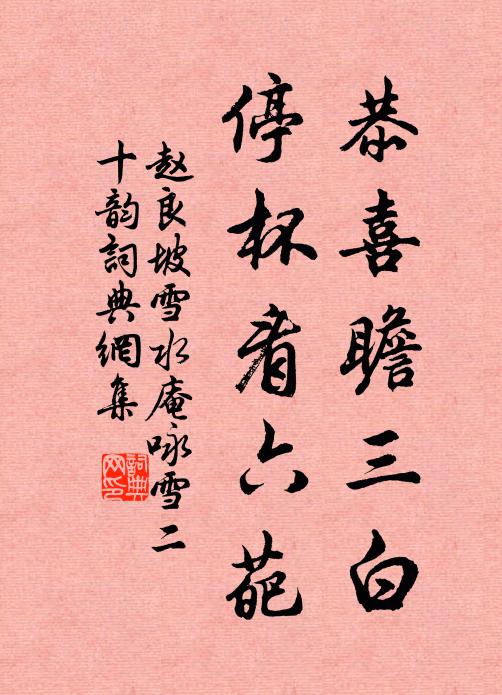 恭喜瞻三白
停杯看六葩
赵良坡雪水庵咏雪二
十韵词典網集
詞典网印